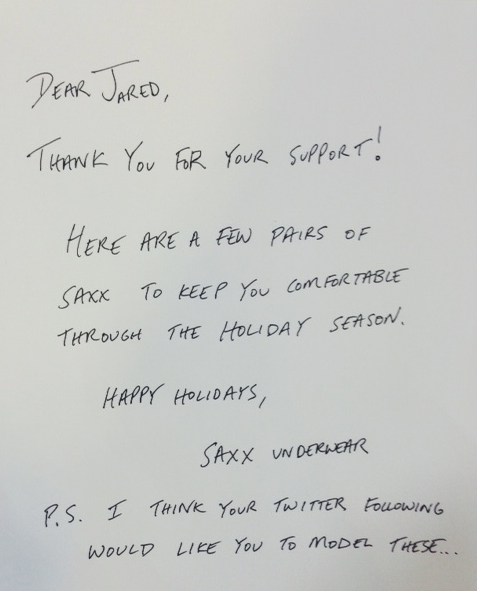 DEAR JARED,
THANK YOU FOR YOUR SUPPORT!
HERE ARE A FEW PAIRS OF
SAXX TO KEEP YOU COMFORTABLE
THROUGH THE HOLIDAY SEASON.
HAPPY HOLIDAYS,
SAXX UNDERWEAR
P.S. I THINK YOUR TWITTER FOLLOWING
WOULD LIKE YOU TO MODEL THESE...